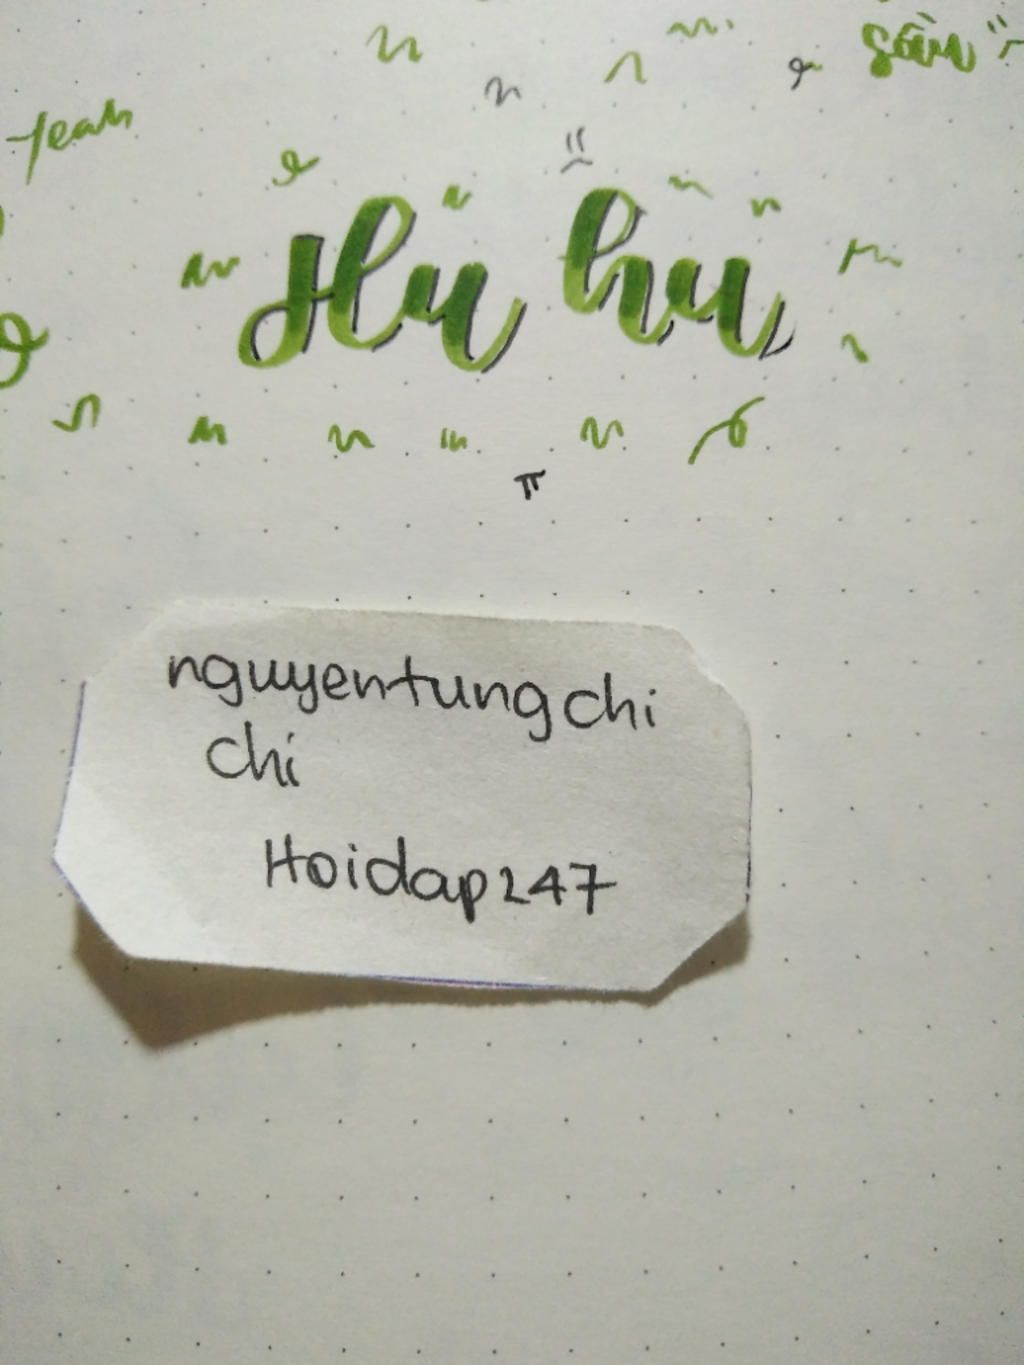 sầu
yeah
Hu hu
nguyentungchi
chi
Hoidap247